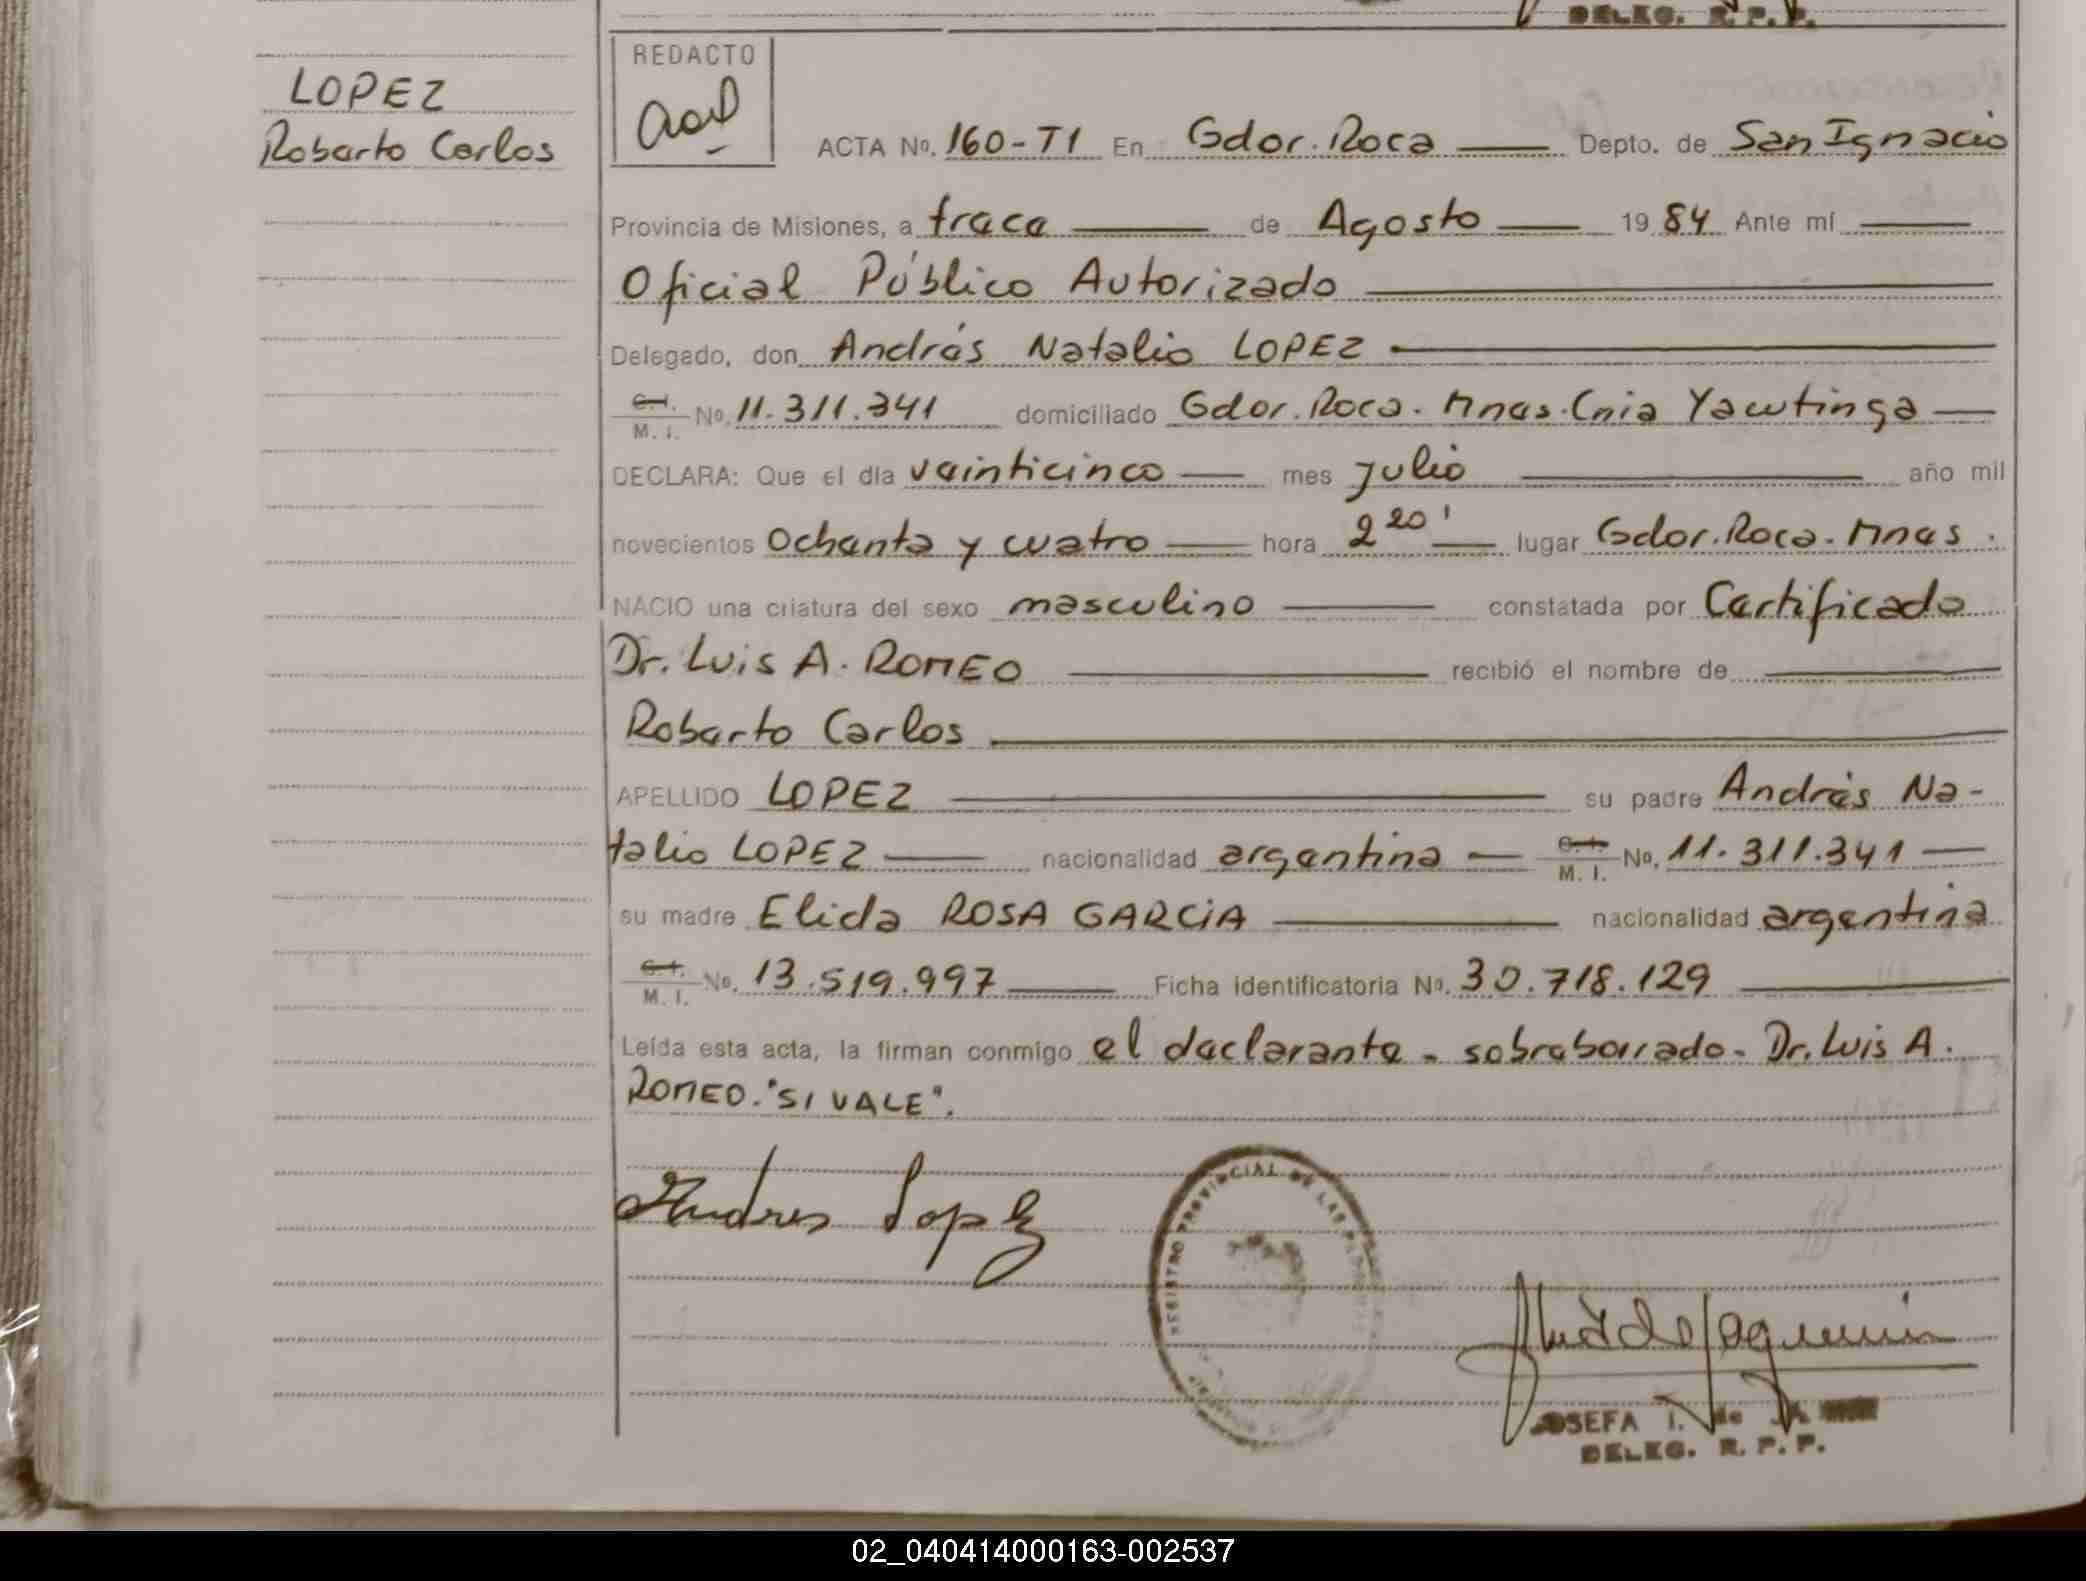 DELEG. R. P. P.
LOPEZ
Roberto Carlos
REDACTO
ACTA No. 160-T1 En Gdor. Roca Depto. de San Ignacio
Provincia de Misiones, a trece de Agosto 19 84 Ante mí
Oficial Público Autorizado
Delegado, don Andrés Natalio LOPEZ
C.I. M. I. No. 11.311.341 domiciliado Gdor. Roca. Mnes. Cnia Yacutinga
DECLARA: Que el día veinticinco mes Julio año mil
novecientos Ochenta y cuatro hora 2 20' lugar Gdor. Roca. Mnes.
NACIO una criatura del sexo masculino constatada por Certificado
Dr. Luis A. ROMEO recibió el nombre de
Roberto Carlos
APELLIDO LOPEZ su padre Andrés Na-
talio LOPEZ nacionalidad argentina C.I. M. I. No. 11.311.341
su madre Elida ROSA GARCIA nacionalidad argentina
C.I. M. I. No. 13.519.997 Ficha identificatoria No. 30.718.129
Leída esta acta, la firman conmigo el declarante - sobreborrado - Dr. Luis A.
ROMEO. "SI VALE".
Andres Lopez
REGISTRO PROVINCIAL DE LAS
JOSEFA I. de
DELEG. R. P. P.
02_040414000163-002537